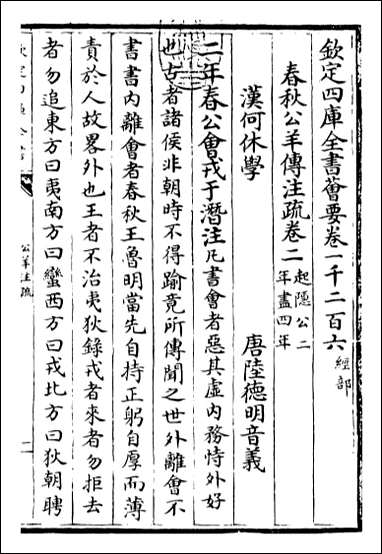 欽定四庫全書薈要卷一千二百六 經部
春秋公羊傳注疏卷二 起隱公二
年盡四年
漢何休學 唐陸德明音義
二年春公會戎于潛注凡書會者惡其虛內務恃外好
也古者諸侯非朝時不得踰竟所傳聞之世外離會不
書書內離會者春秋王魯明當先自持正躬自厚而薄
責於人故畧外也王者不治夷狄錄戎者來者勿拒去
者勿追東方曰夷南方曰蠻西方曰戎北方曰狄朝聘
公羊注疏
一